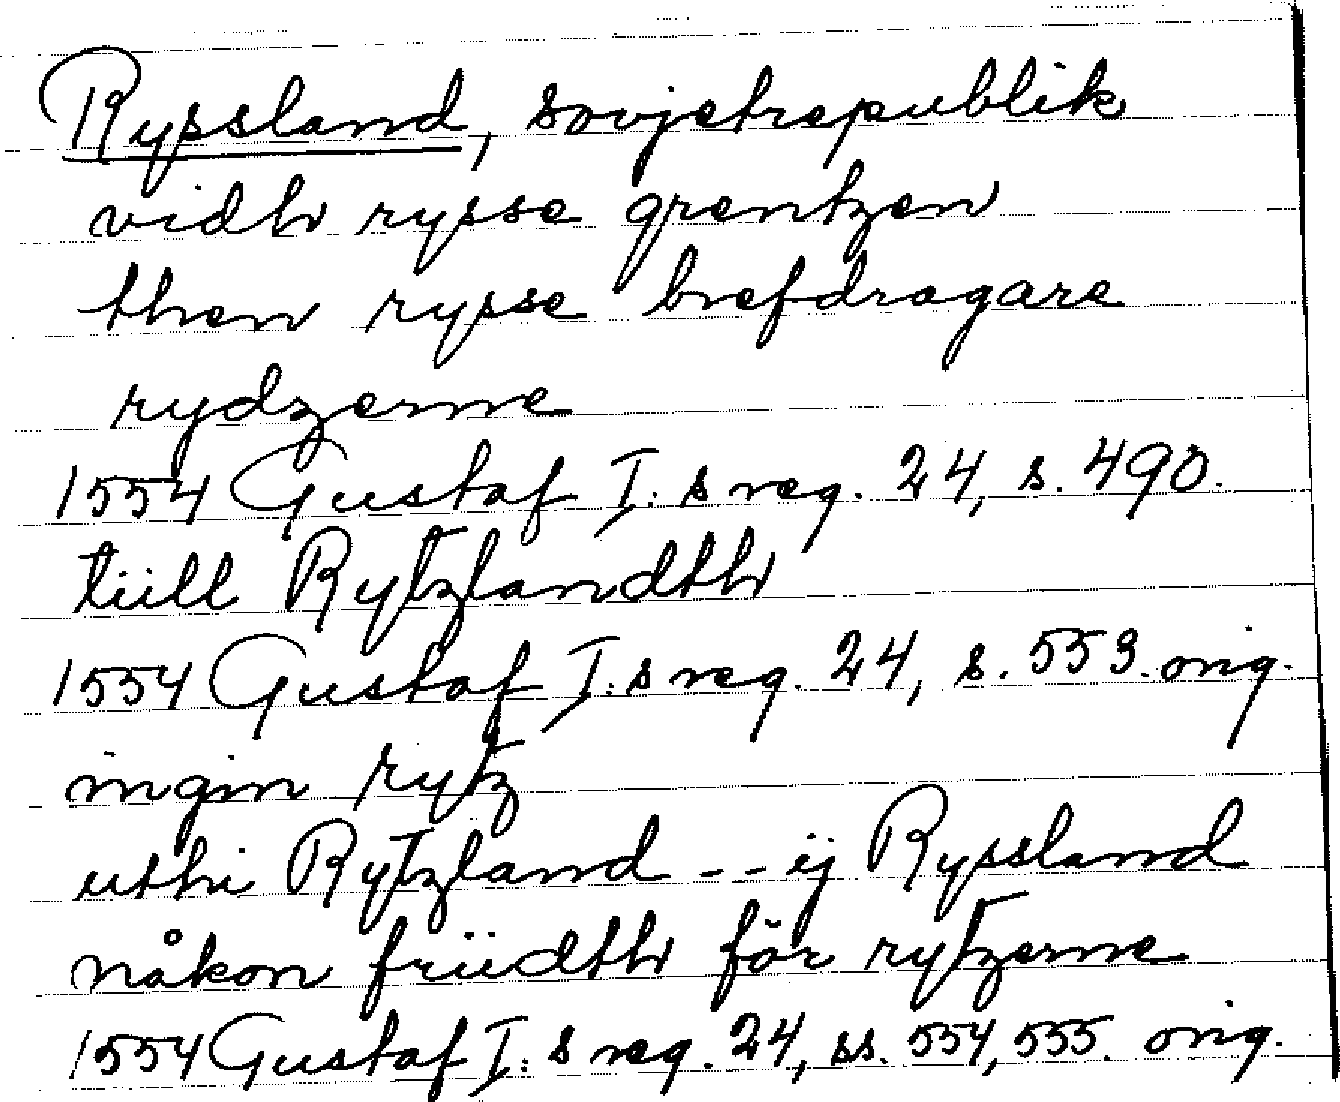 Ryssland, sovjetrepublik
vidh rysse grentzen
then rysse brefdragare
rydzerne
1554 Gustaf I:s reg. 24, s. 490.
tiill Rytzlandth
1554 Gustaf I:s reg. 24, s. 553. orig.
ingin rytz
uthi Rytzland -- ij Ryssland
någon friidth för rytzerne
1554 Gustaf I:s reg. 24, ss. 554, 555. orig.